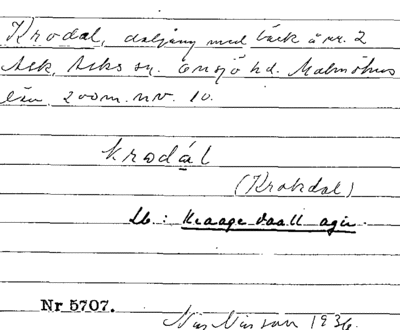 Krodal, dalgång med bäck å nr. 2
Ask, Asks sn. Onsjö hd. Malmöhus
län, 200 m. nv. 10.
krodál
(Krokdal)
Lb: Kraage daall agir.
Nr 5707.
Nils Nilsson 1936.